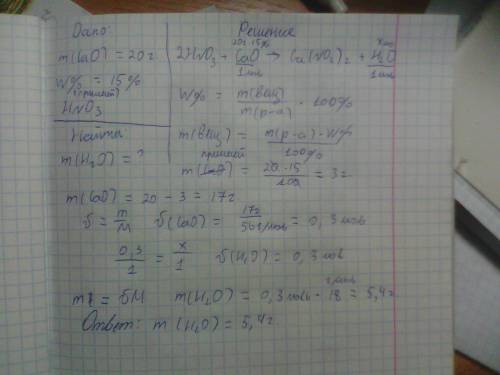 Дано:
m(CaO) = 20 г
W% = 15%
(примесей)
HNO₃
Найти
m(H₂O) = ?
Решение
20г 15% х моль
2HNO₃ + CaO → Ca(NO₃)₂ + H₂O
1 моль 1 моль
W% = m(вещ) / m(р-ра) · 100%
m(вещ) = m(р-ра) · W% / 100%
примесей
m = 20 · 15 / 100 = 3 г
m(CaO) = 20 - 3 = 17 г
υ = m/M υ(CaO) = 17г / 56 г/моль = 0,3 моль
0,3 / 1 = x / 1 υ(H₂O) = 0,3 моль
г/моль
m = υM m(H₂O) = 0,3 моль · 18 = 5,4 г
Ответ: m(H₂O) = 5,4 г